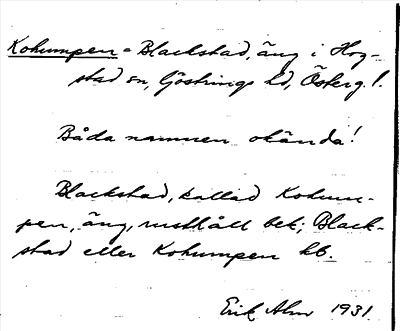 Kohumpen = Blackstad, äng i Hog-
stad sn, Göstrings hd, Österg. l.
Båda namnen okända!
Blackstad, kallad Kohum-
pen, äng, rusthåll bet; Black-
stad eller Kohumpen hb.
Erik Alm 1931.